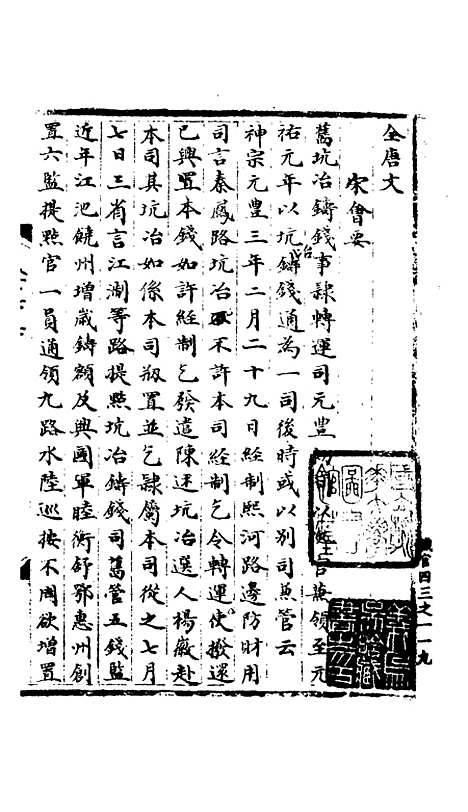 全唐文
宋會要
舊坑冶鑄錢事隸轉運司元豐初命以監官兼領至元
祐元年以坑冶鑄錢通為一司後時或以別司兼管云
神宗元豐三年二月二十九日經制熙河路邊防財用
司言秦鳳路坑冶不許本司經制乞令轉運使撥還
已興置本錢如許經制乞發遣陳述坑冶選人楊徽赴
本司其坑冶如係本司刱置並乞隸屬本司從之七月
七日三省言江淛等路提㸃坑冶鑄錢司舊管五錢監
近年江池饒州增歲鑄額及興國軍睦衡舒鄂惠州創
置六監提㸃官一員通領九路水陸巡按不周欲增置
職官四三之一一九